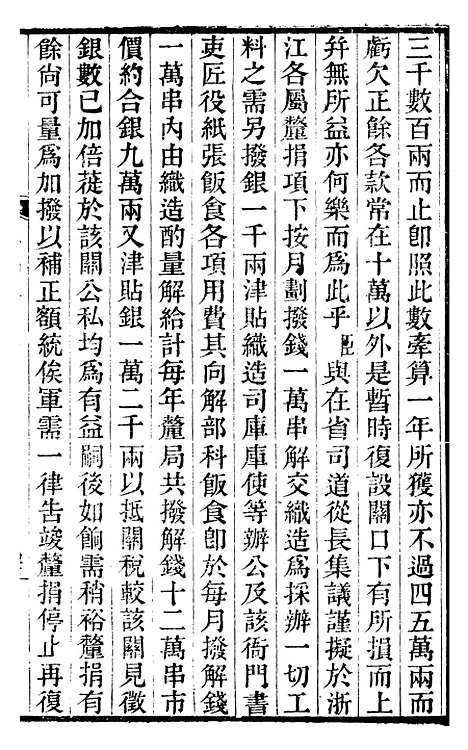 三千數百兩而止卽照此數牽算一年所獲亦不過四五萬兩而
虧欠正餘各款常在十萬以外是暫時復設關口下有所損而上
幷無所益亦何樂而爲此乎臣與在省司道從長集議謹擬於浙
江各屬釐捐項下按月劃撥錢一萬串解交織造爲採辦一切工
料之需另撥銀一千兩津貼織造司庫庫使等辦公及該衙門書
吏匠役紙張飯食各項用費其向解部科飯食卽於每月撥解錢
一萬串內由織造酌量解給計每年釐局共撥解錢十二萬串市
價約合銀九萬兩又津貼銀一萬二千兩以抵關稅較該關見徵
銀數已加倍蓰於該關公私均爲有益嗣後如餉需稍裕釐捐有
餘尙可量爲加撥以補正額統俟軍需一律告竣釐捐停止再復